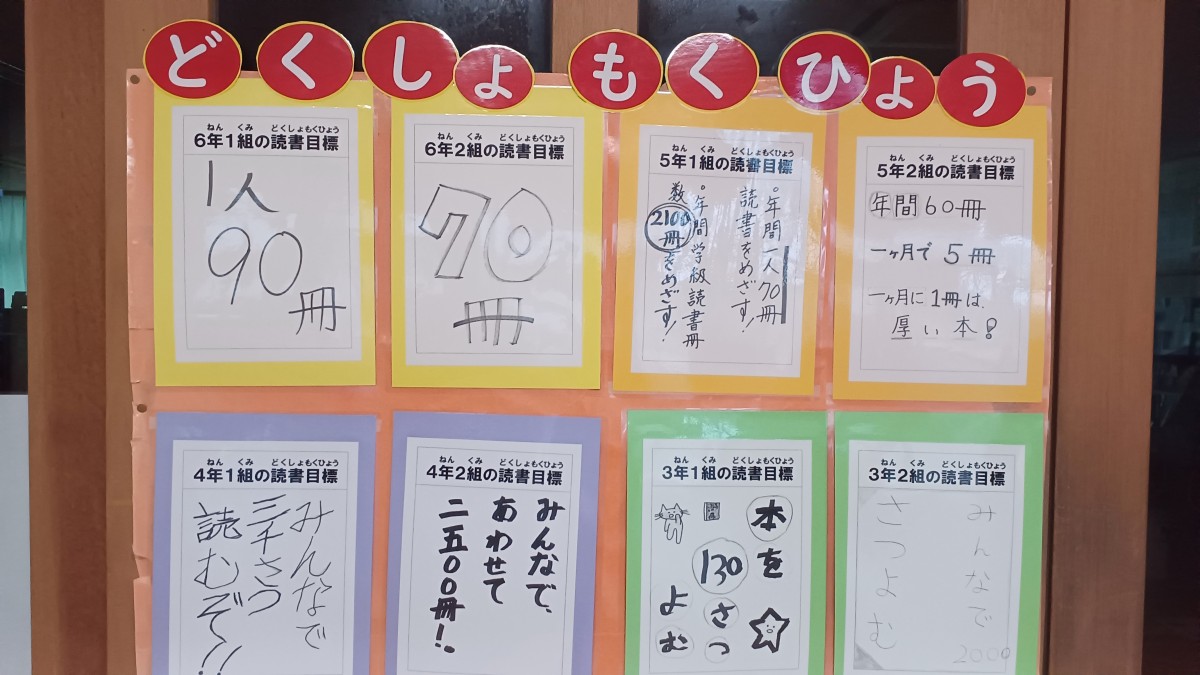 どくしょもくひょう
ねん くみ どくしょもくひょう
6年1組の読書目標
1人
90
冊
ねん くみ どくしょもくひょう
6年2組の読書目標
70
冊
ねん くみ どくしょもくひょう
5年1組の読書目標
。年間一人70冊
読書をめざす!
。年間学級読書冊
数2100冊をめざす!
ねん くみ どくしょもくひょう
5年2組の読書目標
年間60冊
一ヶ月で5冊
一ヶ月に1冊は、
厚い本!
ねん くみ どくしょもくひょう
4年1組の読書目標
みんなで
三千さつ
読むぞ!!
ねん くみ どくしょもくひょう
4年2組の読書目標
みんなで、
あわせて
二五〇〇冊!
ねん くみ どくしょもくひょう
3年1組の読書目標
本を
130
さつ
よむ
ねん くみ どくしょもくひょう
3年2組の読書目標
みんなで2000
さつよむ